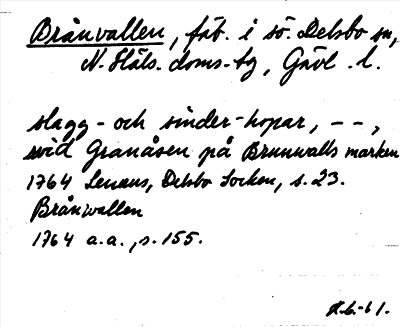 Brånvallen, fäb. i sö. Delsbo sn,
N. Häls. doms-bg, Gävl. l.
slagg- och sinder-hopar, - -,
wid Granåsen på Brunwalls marken
1764 Lenæus, Delsbo Socken, s. 23.
Brånwallen
1764 a.a., s. 155.